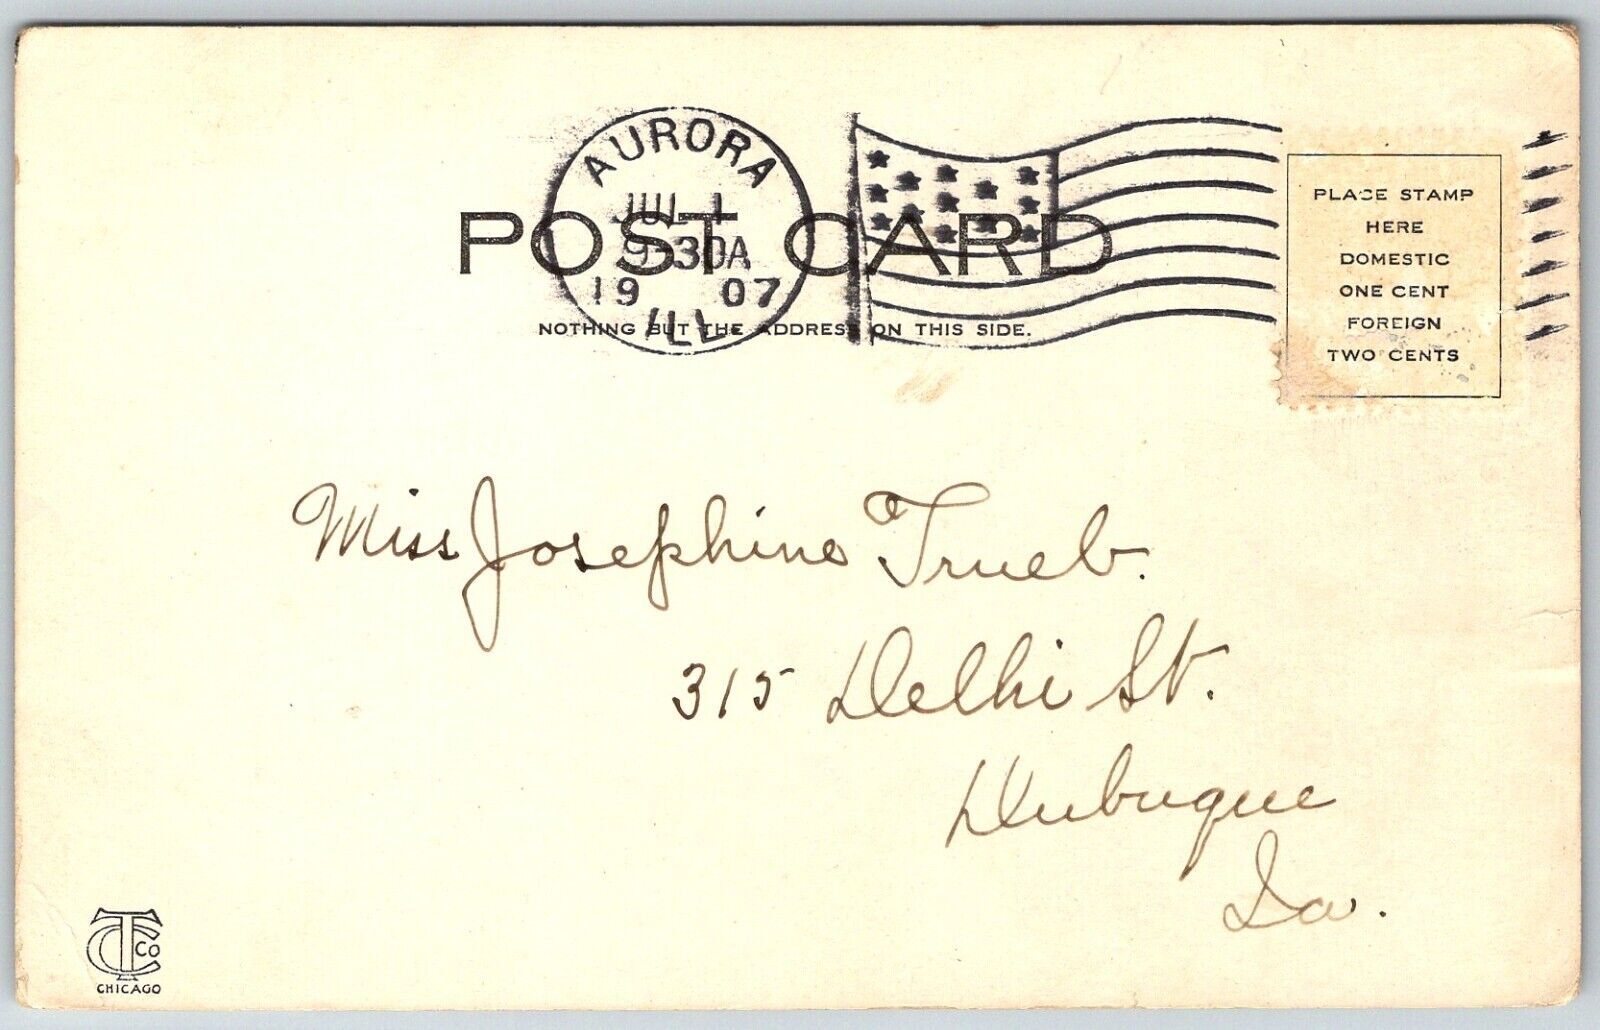 AURORA
JUL 1
9-30A
19 07
ILL.
POST CARD
NOTHING BUT THE ADDRESS ON THIS SIDE.
PLACE STAMP
HERE
DOMESTIC
ONE CENT
FOREIGN
TWO CENTS
Miss Josephine Trueb.
315 Delhi St.
Dubuque
Ia.
CTCo
CHICAGO